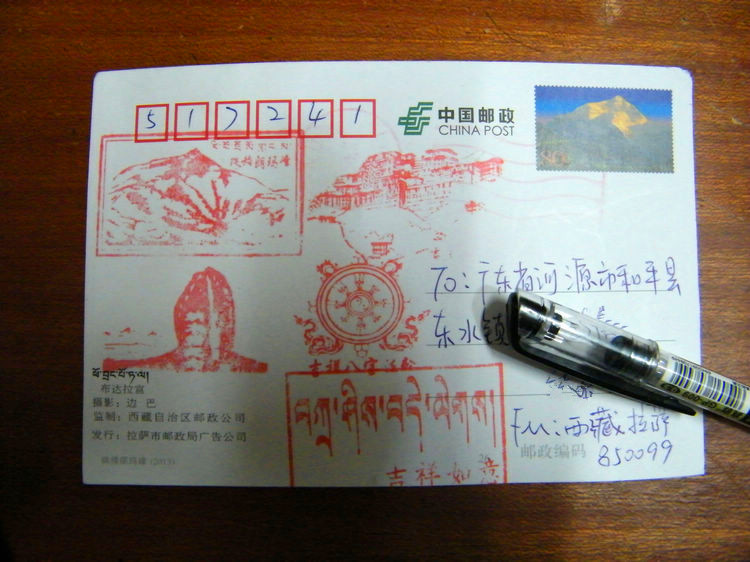 517241
中国邮政
CHINA POST
珠穆朗玛峰
To: 广东省河源市和平县
东水镇
吉祥八字法轮
ཕོ་བྲང་པོ་ཏ་ལ།
布达拉宫
摄影：边 巴
监制：西藏自治区邮政公司
发行：拉萨市邮政局广告公司
(2013)
བཀྲ་ཤིས་བདེ་ལེགས།
吉祥如意
Fm: 西藏拉萨
邮政编码
850099